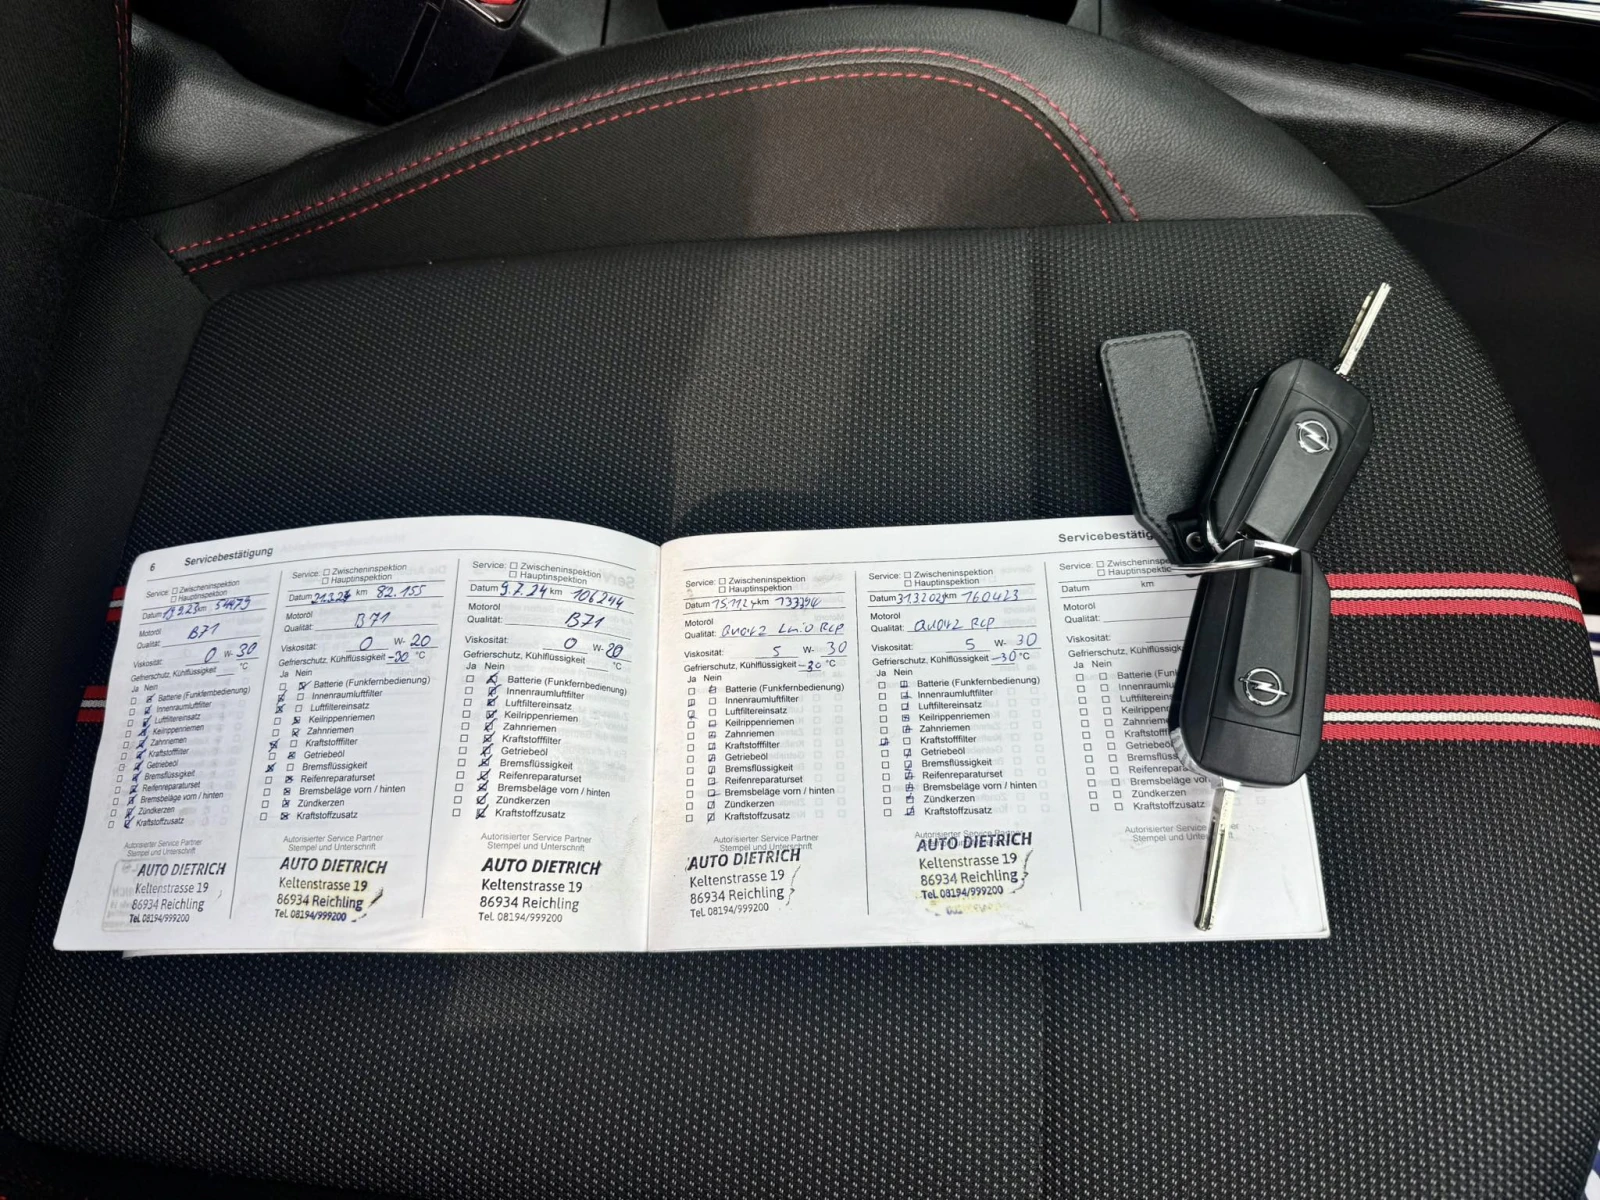 6 Servicebestätigung
Service: ☐ Zwischeninspektion
☐ Hauptinspektion
Datum km 54479
Motoröl
Qualität: B71
Viskosität: 0 W- 30
Gefrierschutz, Kühlflüssigkeit °C
Ja Nein
Batterie (Funkfernbedienung)
Innenraumluftfilter
Luftfiltereinsatz
Keilrippenriemen
Zahnriemen
Kraftstofffilter
Getriebeöl
Bremsflüssigkeit
Reifenreparaturset
Bremsbeläge vorn / hinten
Zündkerzen
Kraftstoffzusatz
Autorisierter Service Partner
Stempel und Unterschrift
AUTO DIETRICH
Keltenstrasse 19
86934 Reichling
Tel. 08194/999200
Service: ☐ Zwischeninspektion
☐ Hauptinspektion
Datum km 82.155
Motoröl
Qualität: B71
Viskosität: 0 W- 20
Gefrierschutz, Kühlflüssigkeit -30 °C
Ja Nein
Batterie (Funkfernbedienung)
Innenraumluftfilter
Luftfiltereinsatz
Keilrippenriemen
Zahnriemen
Kraftstofffilter
Getriebeöl
Bremsflüssigkeit
Reifenreparaturset
Bremsbeläge vorn / hinten
Zündkerzen
Kraftstoffzusatz
Autorisierter Service Partner
Stempel und Unterschrift
AUTO DIETRICH
Keltenstrasse 19
86934 Reichling
Tel. 08194/999200
Service: ☐ Zwischeninspektion
☐ Hauptinspektion
Datum 9.7.24 km 106244
Motoröl
Qualität: B71
Viskosität: 0 W- 20
Gefrierschutz, Kühlflüssigkeit °C
Ja Nein
Batterie (Funkfernbedienung)
Innenraumluftfilter
Luftfiltereinsatz
Keilrippenriemen
Zahnriemen
Kraftstofffilter
Getriebeöl
Bremsflüssigkeit
Reifenreparaturset
Bremsbeläge vorn / hinten
Zündkerzen
Kraftstoffzusatz
Autorisierter Service Partner
Stempel und Unterschrift
AUTO DIETRICH
Keltenstrasse 19
86934 Reichling
Tel. 08194/999200
Servicebestätig
Service: ☐ Zwischeninspektion
☐ Hauptinspektion
Datum km
Motoröl
Qualität: Quarz RCP
Viskosität: 5 W- 30
Gefrierschutz, Kühlflüssigkeit -30 °C
Ja Nein
Batterie (Funkfernbedienung)
Innenraumluftfilter
Luftfiltereinsatz
Keilrippenriemen
Zahnriemen
Kraftstofffilter
Getriebeöl
Bremsflüssigkeit
Reifenreparaturset
Bremsbeläge vorn / hinten
Zündkerzen
Kraftstoffzusatz
Autorisierter Service Partner
Stempel und Unterschrift
AUTO DIETRICH
Keltenstrasse 19
86934 Reichling
Tel. 08194/999200
Service: ☐ Zwischeninspektion
☐ Hauptinspektion
Datum 31.3.2025 km 160423
Motoröl
Qualität: Quarz RCP
Viskosität: 5 W- 30
Gefrierschutz, Kühlflüssigkeit -30 °C
Ja Nein
Batterie (Funkfernbedienung)
Innenraumluftfilter
Luftfiltereinsatz
Keilrippenriemen
Zahnriemen
Kraftstofffilter
Getriebeöl
Bremsflüssigkeit
Reifenreparaturset
Bremsbeläge vorn / hinten
Zündkerzen
Kraftstoffzusatz
Autorisierter Service Partner
AUTO DIETRICH
Keltenstrasse 19
86934 Reichling
Tel. 08194/999200
Service: ☐ Zwischeninspekti
☐ Hauptinspekti
Datum km
Motoröl
Qualität:
Viskosität:
Gefrierschutz, Kühlflüssig
Ja Nein
Batterie (Funk
Innenraumluf
Luftfiltereins
Keilrippenrie
Zahnriemen
Kraftstofffilt
Getriebeöl
Bremsflüssi
Reifenrepara
Bremsbeläge vor
Zündkerzen
Kraftstoffzusatz
Autorisierter Service
Stempel und Unters